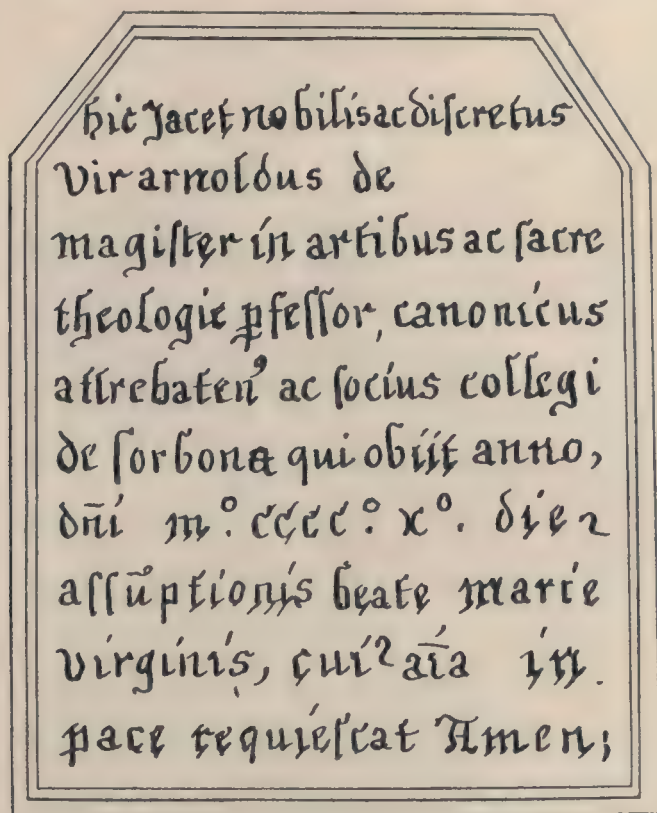 hic Jacet nobilis ac discretus
vir arnoldus de
magister in artibus ac sacre
theologie ꝑfessor, canonicus
attrebateñ⁹ ac socius collegi
de sorbona qui obiit anno,
dñi m.° cccc.° x°. die
assũptionis beate marie
virginis, cui⁹ aīa in.
pace requiescat Amen;